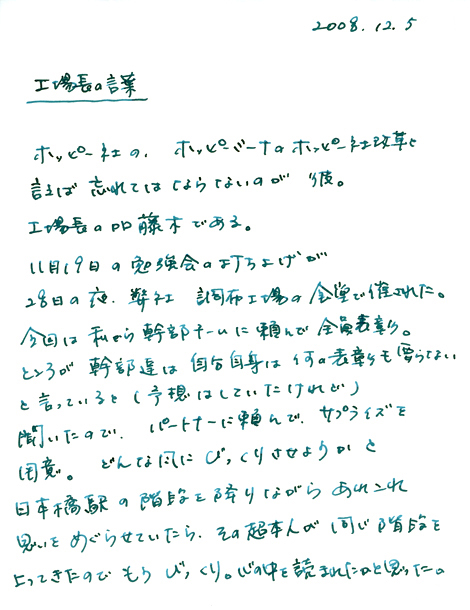 2008.12.5
工場長の言葉
ホッピー社の、ホッピーミーナのホッピー社改革と
言えば 忘れてはならないのが 彼。
工場長の 加藤木である。
11月19日の勉強会の打ち上げが
28日の夜、弊社 調布工場の食堂で催された。
今回は 私から 幹部チームに頼んで 全員表彰。
ところが 幹部達は 自分自身は 何の表彰も要らない
と言っていると(予想はしていたけれど)
聞いたので、パートナーに頼んで、サプライズを
用意。 どんな風に びっくりさせようかと
日本橋駅の階段を降りながら あれこれ
思いをめぐらせていたら、その超本人が 同じ階段を
上ってきたので もう びっくり。心の中を読まれたかと思った。